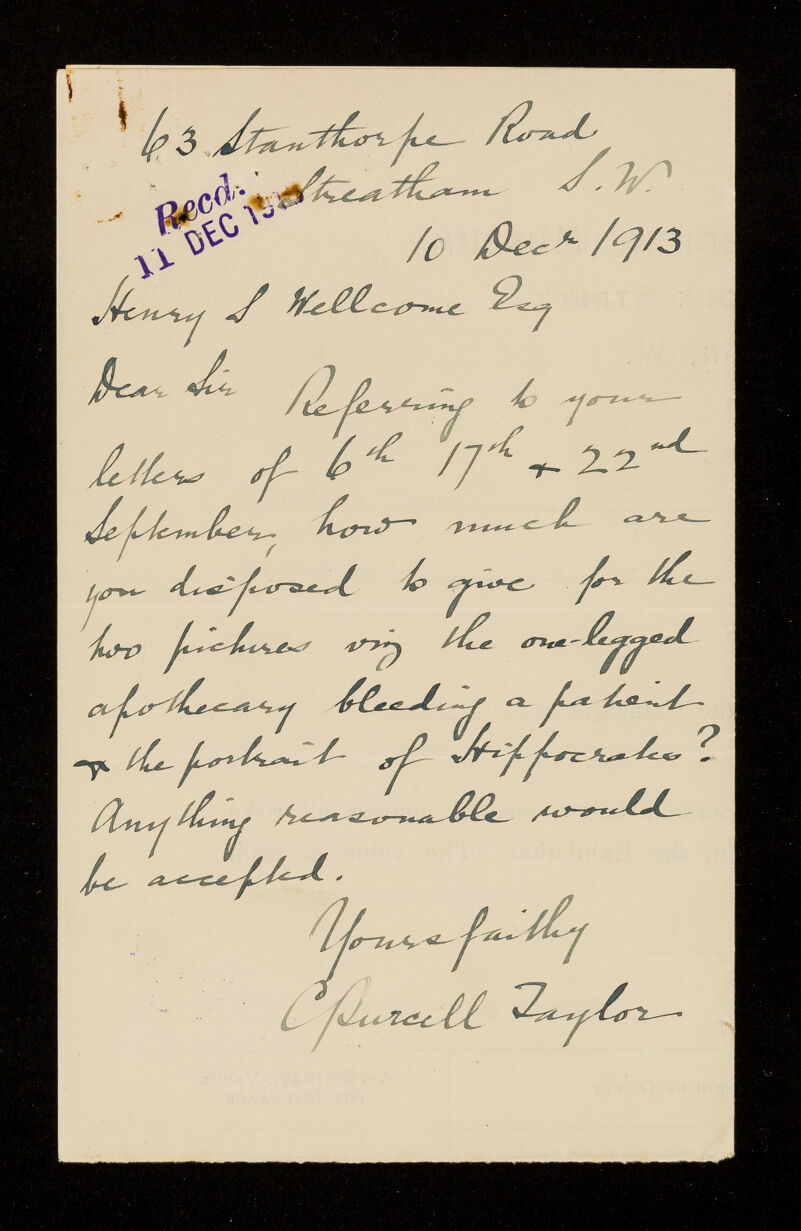 63 Stanthorpe Road
Streatham S.W.
Recd.
11 DEC 191
10 Decr 1913
Henry S Wellcome Esq
Dear Sir Referring to your
letters of 6th 17th & 22nd
September, how much are
you disposed to give for the
two pictures viz the one-legged
apothecary bleeding a patient
& the portrait of Hippocrates?
Anything reasonable would
be accepted.
Yours faithy
C Purcell Taylor